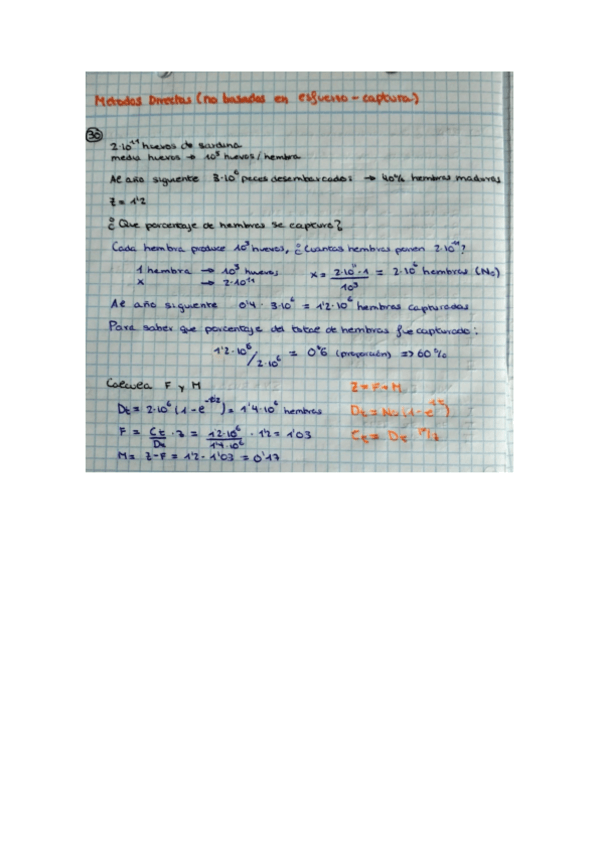 Metodos Directos (no basados en esfuerzo - captura)
30
2·10¹¹ huevos de sardina
media huevos → 10⁵ huevos/hembra
Al año siguiente 3·10⁶ peces desembarcados → 40% hembras maduras
Z = 1'2
¿Que porcentaje de hembras se captura?
Cada hembra produce 10⁵ huevos, ¿Cuantas hembras ponen 2·10¹¹?
1 hembra → 10⁵ huevos x = 2·10¹¹·1 / 10⁵ = 2·10⁶ hembras (N₀)
x → 2·10¹¹
Al año siguiente 0'4 · 3·10⁶ = 1'2·10⁶ hembras capturadas
Para saber que porcentaje del total de hembras fue capturado:
1'2·10⁶ / 2·10⁶ = 0'6 (proporción) => 60%
Calcula F y M Z = F + M
Dt = 2·10⁶ (1 - e⁻¹'²) = 1'4·10⁶ hembras Dt = N₀ (1 - e⁻ᶻ)
F = Ct/Dt · Z = 1'2·10⁶/1'4·10⁶ · 1'2 = 1'03 Ct = Dt F/Z
M = Z - F = 1'2 - 1'03 = 0'17